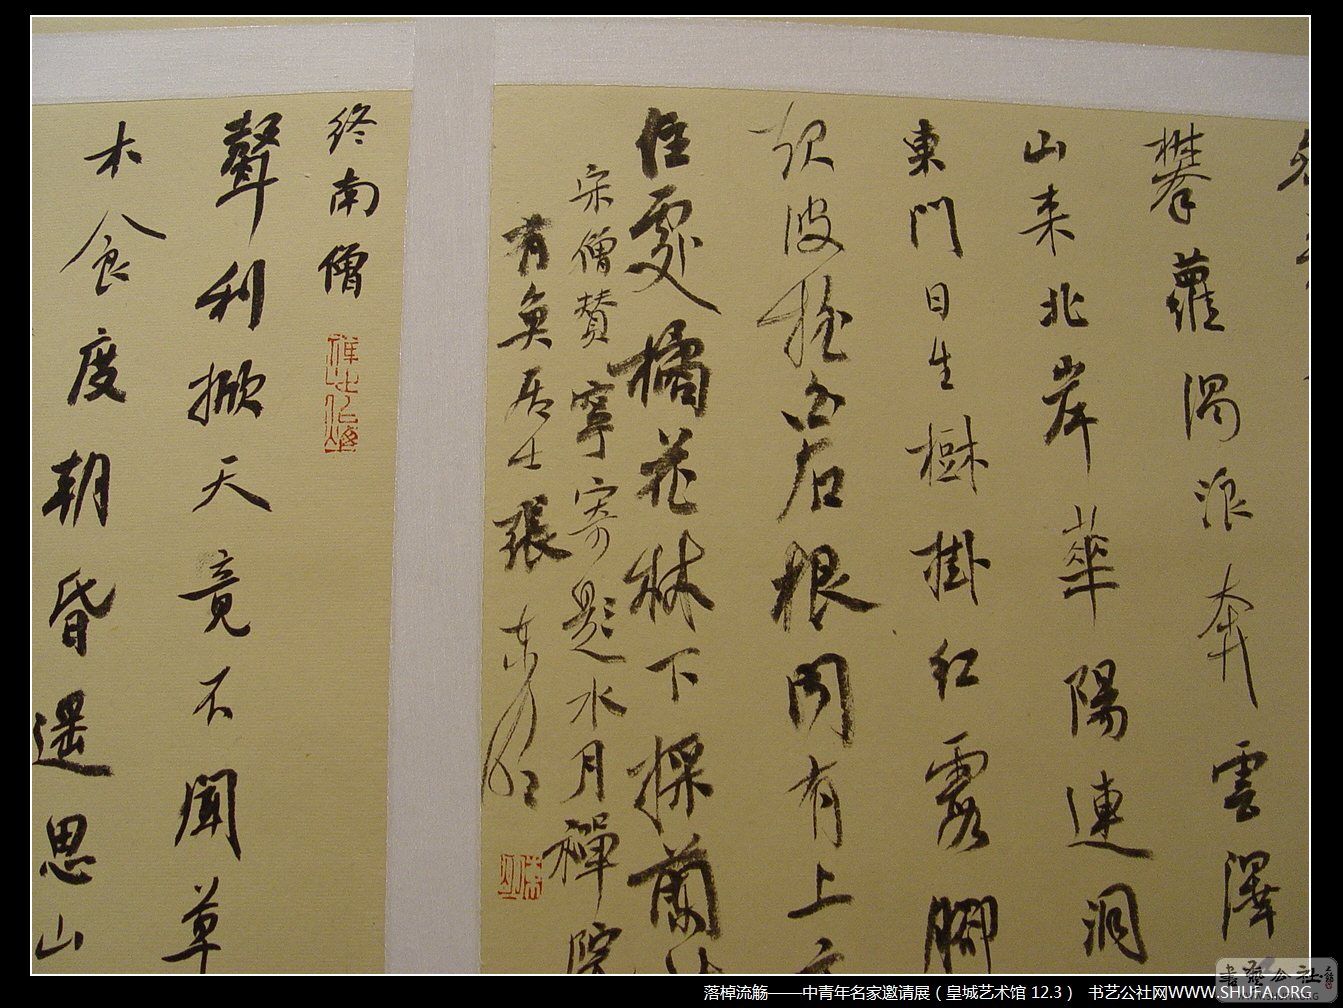 攀蘿濁浪奔雲澤
山来北岸華陽連洞
東門日生樹掛紅霞脚
起波搖白石根聞有上
住處橘花林下採蘭
宋僧贊寧寄題水月禪院
有奐居士張東明
終南僧
聲利掀天竟不聞草
木食度朝昏遥思山
落棹流觞——中青年名家邀请展（皇城艺术馆 12.3 ） 书艺公社网WWW.SHUFA.ORG